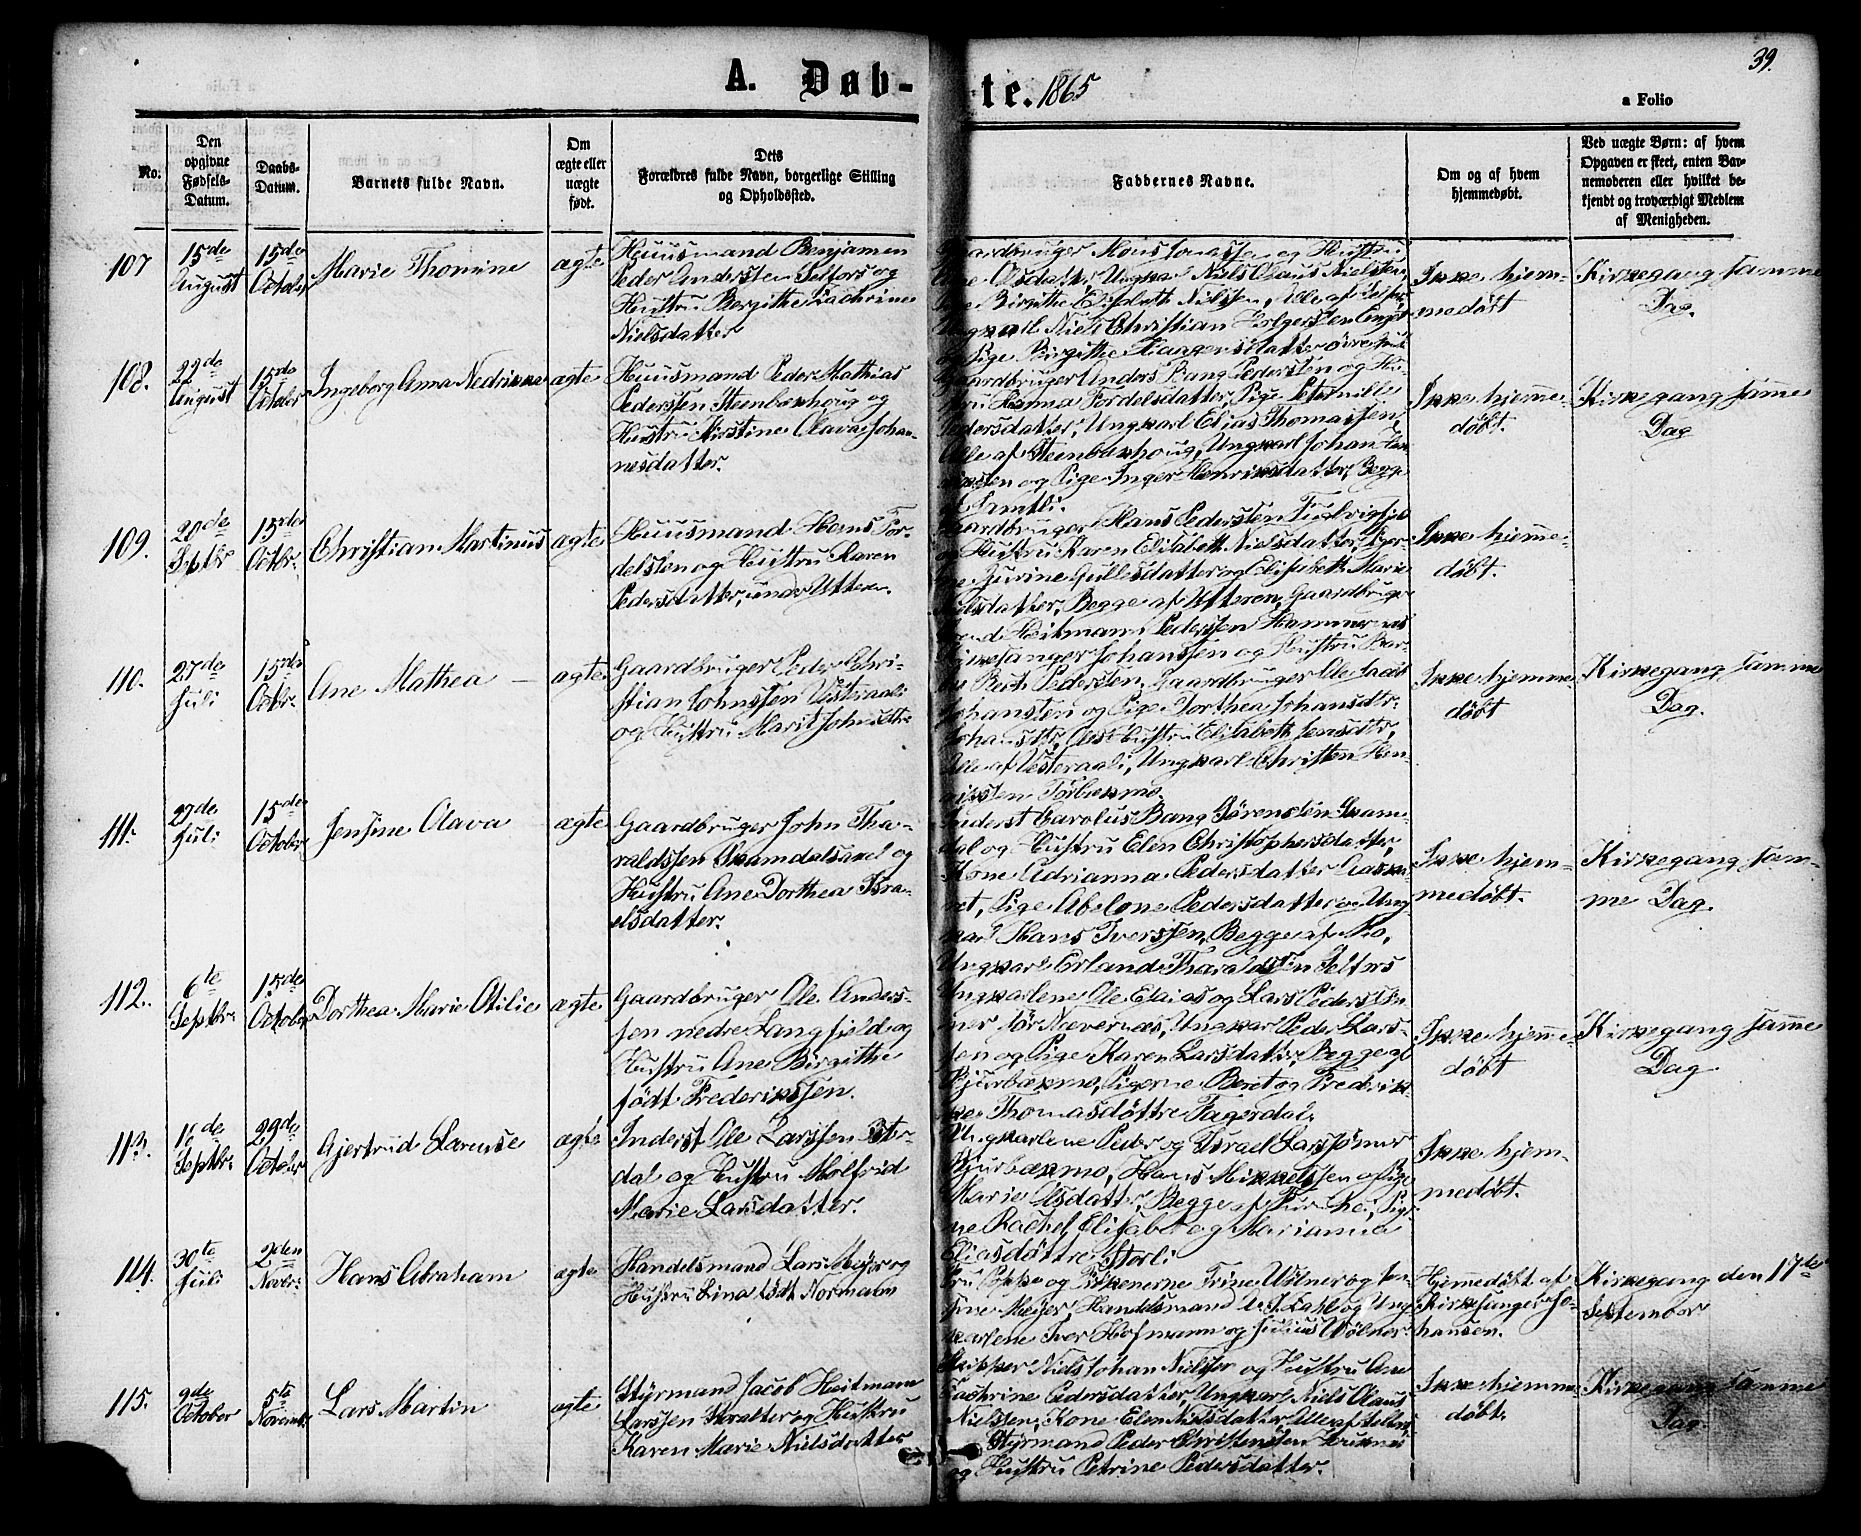 39.
A. Døbte. 1865
a Folio
No.
Den opgivne Fødsels-Datum.
Daabs-Datum.
Barnets fulde Navn.
Om ægte eller uægte født.
Dets Forældres fulde Navn, borgerlige Stilling og Opholdssted.
Faddernes Navne.
Om og af hvem hjemmedøbt.
Ved uægte Børn: af hvem Opgaven er skeet, enten Barnemoderen eller hvilket bekjendt og troværdigt Medlem af Menigheden.
107
15de August
15de October
Marie Thomine
ægte
Huusmand Benjamen
Peder Anderssen Selfors og
Hustru Bergitte Cachrine
Nielsdatter
Gaardbruger Mons Jonassen og Hustru
Olsdatter, Ungkar Niels Olaus Nielssen,
Birgitte Elisabeth Nielssen, Alle af Selfors,
Ungkarl Niels Christian Holgerssen
og Pige Birgitte Hansensdatter
Ikke hjem-
medøbt
Kirkegang samme
Dag.
108.
22de August
15de October
Ingeborg Anna Nedrikke
ægte
Huusmand Peder Mathias
Pederssen Steenbækhoug og
Hustru Kirstine Olava Johan-
nesdatter.
Gaardbruger Anders Bang Pederssen og Hu-
stru Hanna Pordelsdatter, Pige Peternille
Pedersdatter, Ungkarl Elias Thomassen,
Alle af Steenbækhoug, Ungkarl Johan Hen-
rikssen og Pige Inger Henriksdatter, Begge
Ikke hjemme-
døbt.
Kirkegang samme
Dag
109.
20de Septbr
15de Octbr.
Christian Martinus
ægte
Huusmand Hans Por-
delssen og Hustru Karen
Pedersdatter, under Ytteren.
Gaardbruger Hans Pederssen
og Hustru Karen Elisabeth Nielsdatter, Piger-
ne Jurine Gullesdatter og Elisabeth Marie
Nielsdatter, Begge af Ytteren, Gaardbruger
Heitmann Pederssen Hammernes
Ikke hjemme-
døbt.
110.
27de Juli
15de Octbr.
Ane Mathea —
ægte
Gaardbruger Peder Chri-
stian Johnssen Vesteraali
og Hustru Marit Johnsdtr
Kirkesanger Johanssen og Hustru Ber-
Buth Pedersen, Gaardbruger Ole Jacob
Johanssen og Pige Dorthea Johansdtr.
Johansdtr, Hustru Elisabeth Jensdtr,
Alle af Vesteraali, Ungkarl Christen Hen-
rikssen
Ikke hjemme
døbt
Kirkegang samme
Dag.
111.
29de Juli
15de October
Jensine Olava
ægte
Gaardbruger John Tha-
raldssen Skamdalsaxel og
Hustru Ane Dorthea Isra-
elsdatter.
Inderst Carolus Bang Sørenssen Skam-
dal og Hustru Elen Christophersdatter,
Kone Adrianna Pedersdatter
Pige Abelone Pedersdatter og Ung-
karl Hans Iverssen, Begge af Mo,
Ungkarl Erland Tharaldssen Selfors
Ikke hjem-
medøbt.
Kirkegang sam-
me Dag.
112.
6te Septbr.
15de October
Dorthea Marie Otilie
ægte
Gaardbruger Ole Anders-
sen nedre Langfjeld og
Hustru Ane Birgitthe
født Frederikssen.
Ungkarlene Ole Elaias og Lars Pederssen
Nævernæs, Ungkarl Peder Lars-
sen og Pige Karen Larsdatter, Begge af
Bjurbækmo, Pigerne Beret og Fredrik-
ke Thomasdøttre Fagerdal.
Ikke hjemme-
døbt
Kirkegang samme
Dag
113.
16de Septbr.
29de October
Gjertrud Larense
ægte
Inderst Ole Larssen
dal og Hustru Molfrid
Marie Larsdatter.
Ungkarlene Peder og Israel Larssønner
Bjurbækmo, Hans Mikkelssen og Pige
Marie Olsdatter, Begge af
Rachel, Elisabet og Marianna
Eliasdøttre Storli
Ikke hjem-
medøbt.
114.
30te Juli
2den Novbr.
Hans Abraham
ægte
Handelsmand Lars Meyer og
Hustru Lina født Normann
Fru og Frøkenerne Trine Wølner og Jen-
sine Meyer, Handelsmand Dahl og Ung-
karlene Iver Hofmann og Julius Wølner
Hjemmedøbt af
Kirkesanger Jo-
hansen.
Kirkegang den 17de
September
115.
9de October
5te Novembr.
Lars Martin
ægte
Styrmand Jacob Heitmann
Larssen Svalter og Hustru
Karen Marie Nielsdatter
Skipper Niels Johan Nielssen og Hustru Ane
Cachrine Pedersdatter, Ungkarl Niels Olaus
Nielssen, Kone Elen Nielsdatter, Alle af
Styrmand Peder Christenssen
og Hustru Petrine Pedersdatter.
Ikke hjemme-
døbt.
Kirkegang samme
Dag.